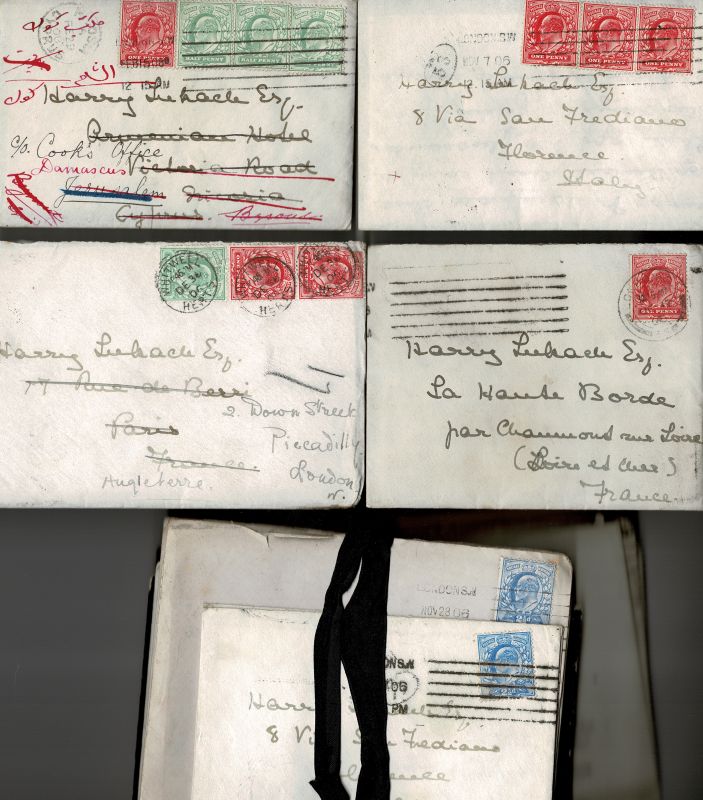 ONE PENNY HALF PENNY HALF PENNY HALF PENNY
12 15 PM
Harry Lukach Esq.
Armenian Hotel
c/o Cook's Office
Victoria Road
Damascus
Jerusalem
Nicosia
Cyprus
LONDON.S.W
NOV 7 06
ONE PENNY ONE PENNY ONE PENNY
Harry Lukach Esq.
8 Via San Frediano
Florence
Italy
WHITWELL
HERTS
Harry Lukach Esq.
77 Rue de Berri
2. Down Street
Paris
Piccadilly
France
London
Angleterre.
W.
ONE PENNY
Harry Lukach Esq.
La Haute Borde
par Chaumont sur Loire
(Loire et Cher)
France
LONDON S.W
NOV 28 06
ONDON.S.W
06
PM
Harry Lukach Esq.
8 Via San Frediano
Florence